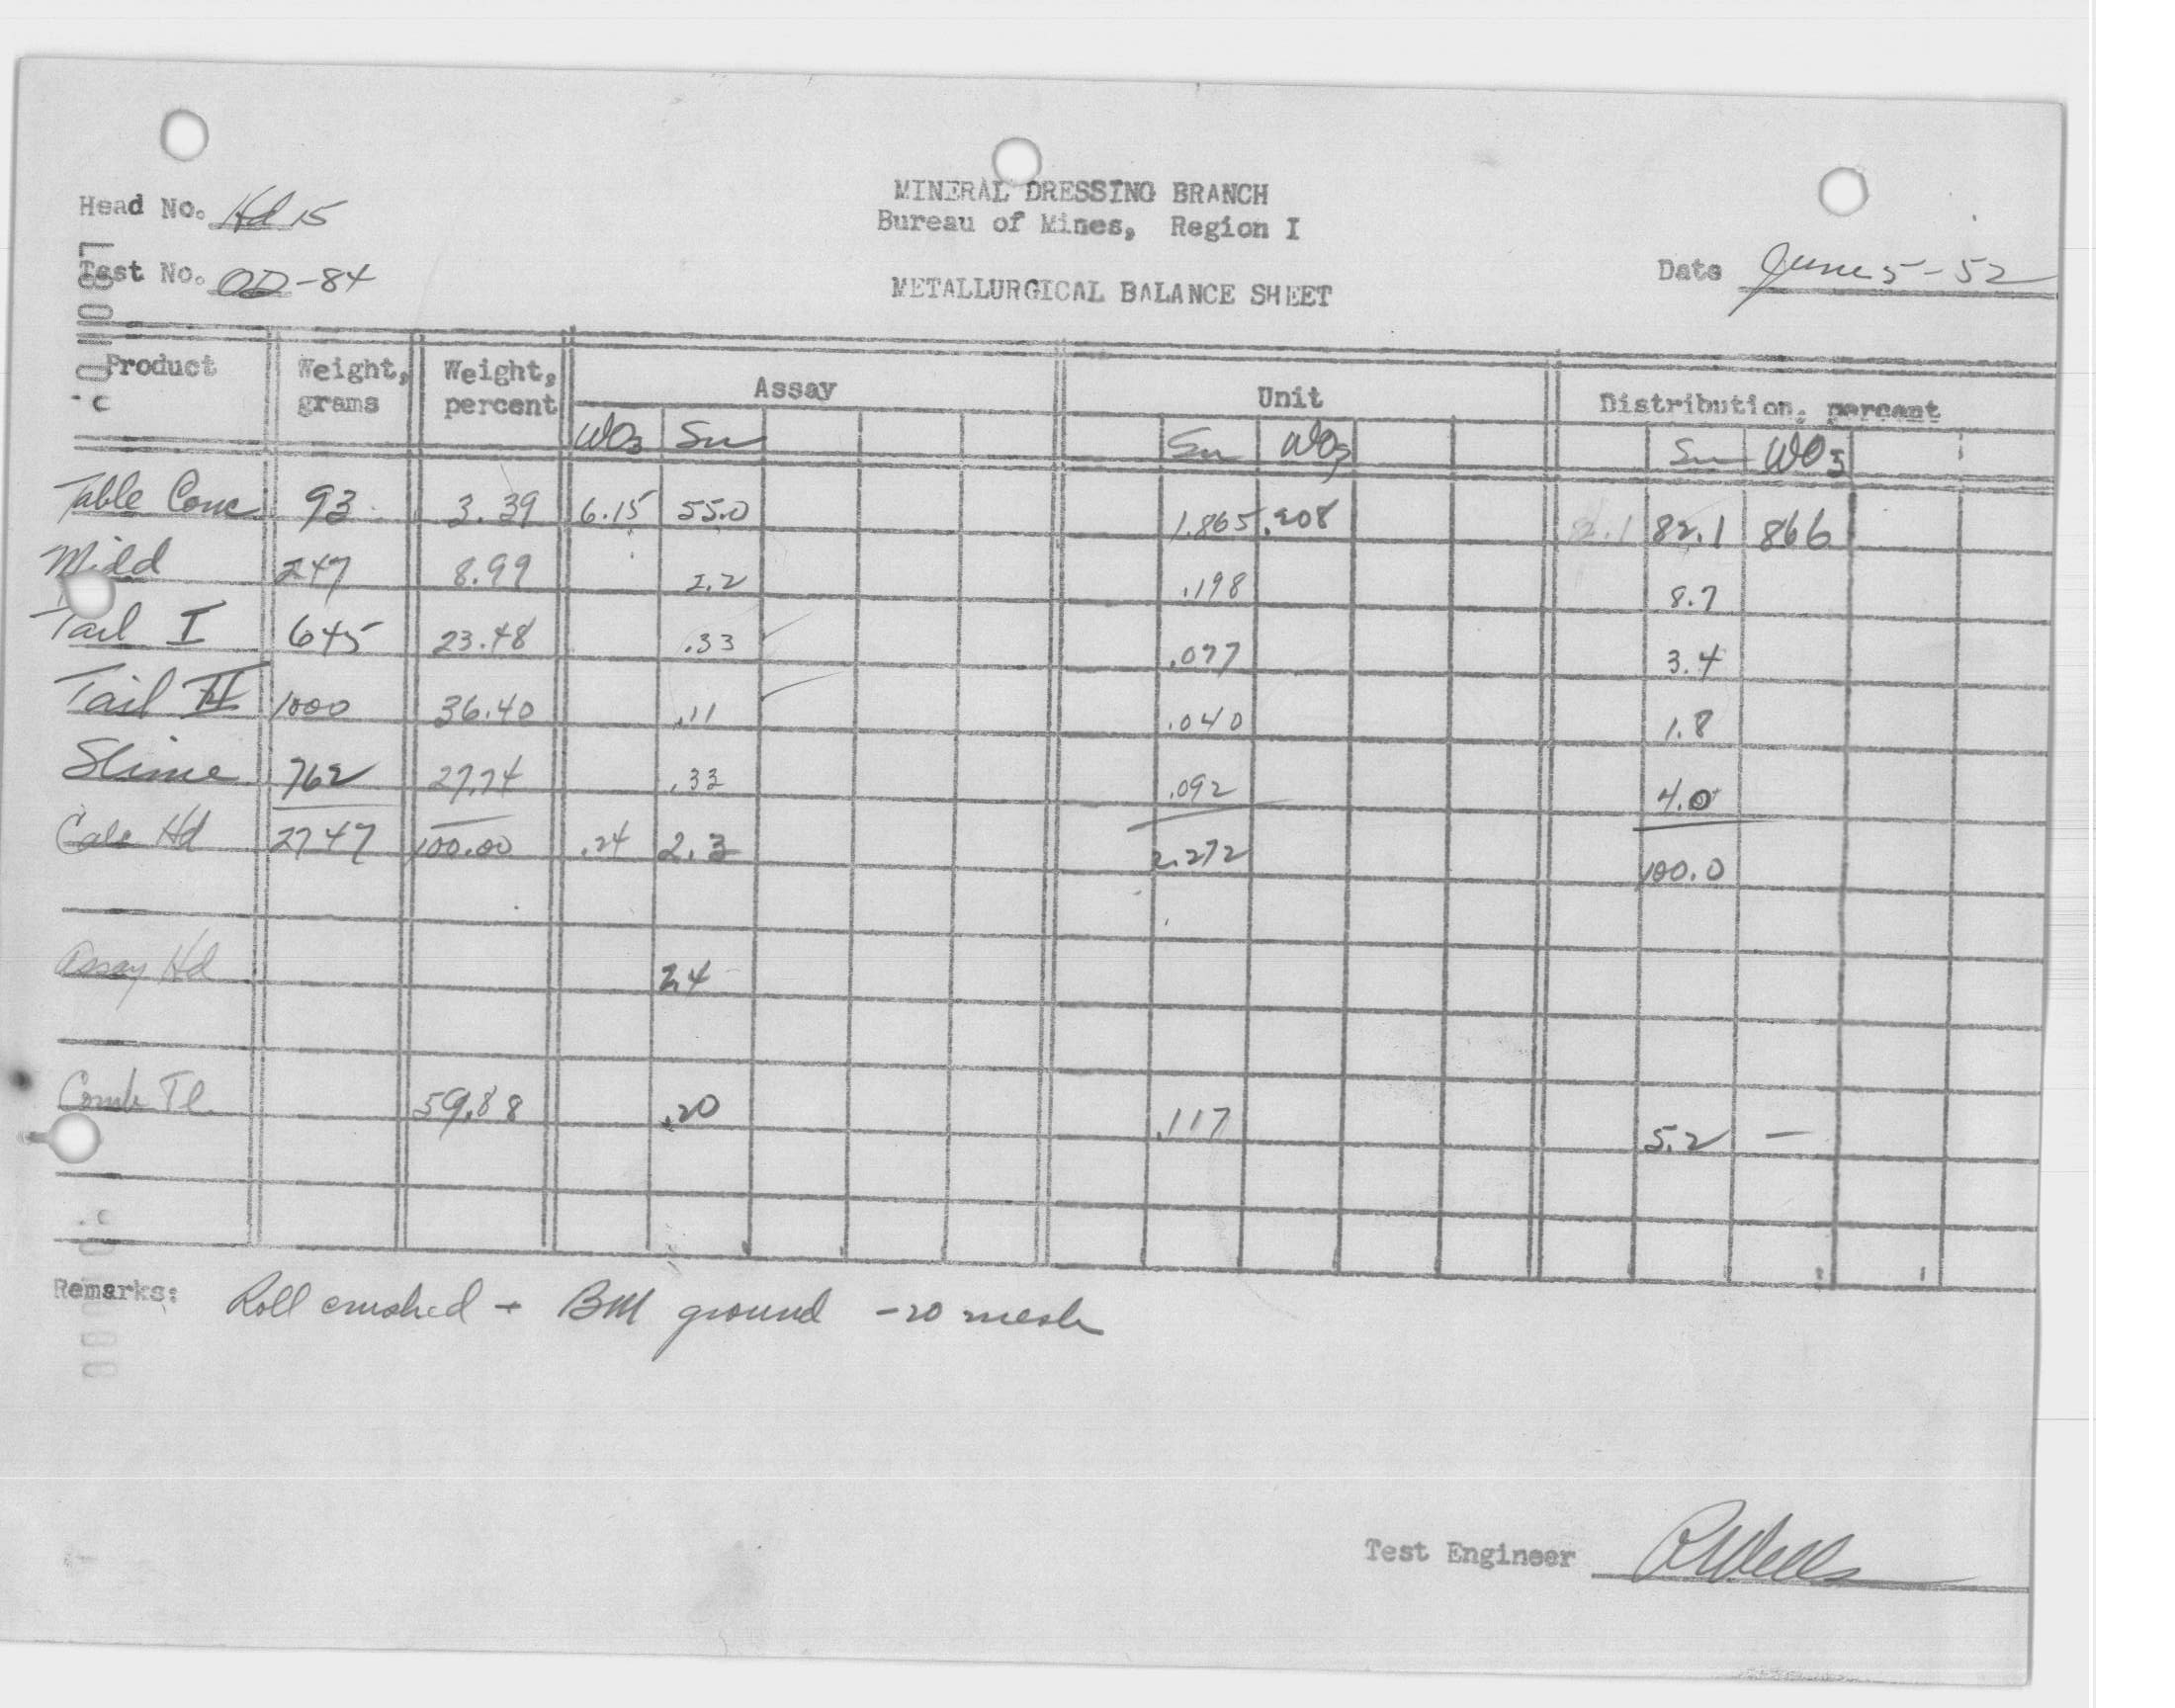 MINERAL DRESSING BRANCH
Head No. Hd 15
Bureau of Mines, Region I
Test No. OD-84
Date June 5-52
METALLURGICAL BALANCE SHEET
Product Weight, grams Weight, percent Assay Unit Distribution, percent
WO3 Sn Sn WO3 Sn WO3
Table Conc 93 3.39 6.15 55.0 1.865 .208 82.1 82.1 866
Midd 247 8.99 2.2 .198 8.7
Tail I 645 23.48 .33 .077 3.4
Tail II 1000 36.40 .11 .040 1.8
Slime 762 27.74 .33 .092 4.0
Calc Hd 2747 100.00 .24 2.3 2.272 100.0
Assay Hd 2.4
Comb Tl. 59.88 .20 .117 5.2 —
Remarks: Roll crushed + BM ground -20 mesh
Test Engineer RWells